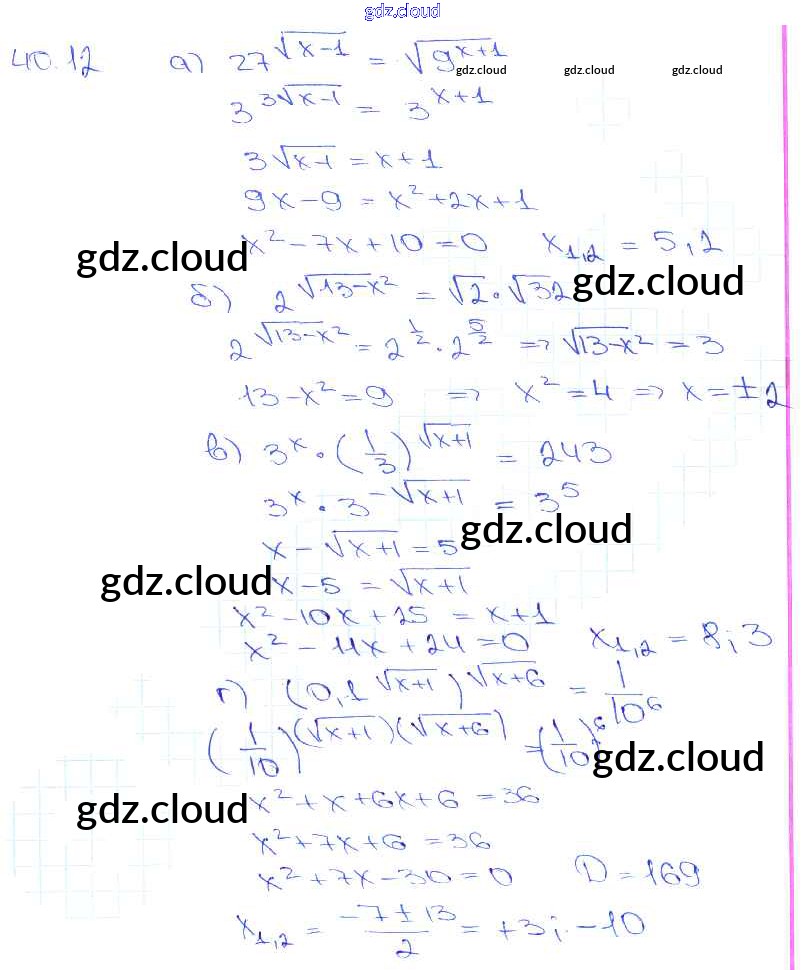 gdz.cloud
40.12 а) 27^√(x-1) = √(9^(x+1))
gdz.cloud gdz.cloud gdz.cloud
3^(3√(x-1)) = 3^(x+1)
3√(x-1) = x+1
9x-9 = x²+2x+1
x²-7x+10=0 x₁,₂ = 5,2
gdz.cloud
б) 2^√(13-x²) = √2·√32
gdz.cloud
2^√(13-x²) = 2^(1/2)·2^(5/2) => √(13-x²) = 3
13-x²=9 => x²=4 => x=±2
в) 3^x·(1/3)^√(x+1) = 243
3^x·3^(-√(x+1)) = 3^5
x-√(x+1) = 5
gdz.cloud
x-5 = √(x+1)
gdz.cloud
x²-10x+25 = x+1
x²-11x+24=0 x₁,₂ = 8;3
г) (0,1^√(x+1))^√(x+6) = 1/10^6
(1/10)^((√(x+1))(√(x+6))) = (1/10)^6
gdz.cloud
x²+x+6x+6 = 36
gdz.cloud
x²+7x+6 = 36
x²+7x-30=0 D=169
x₁,₂ = (-7±13)/2 = +3; -10